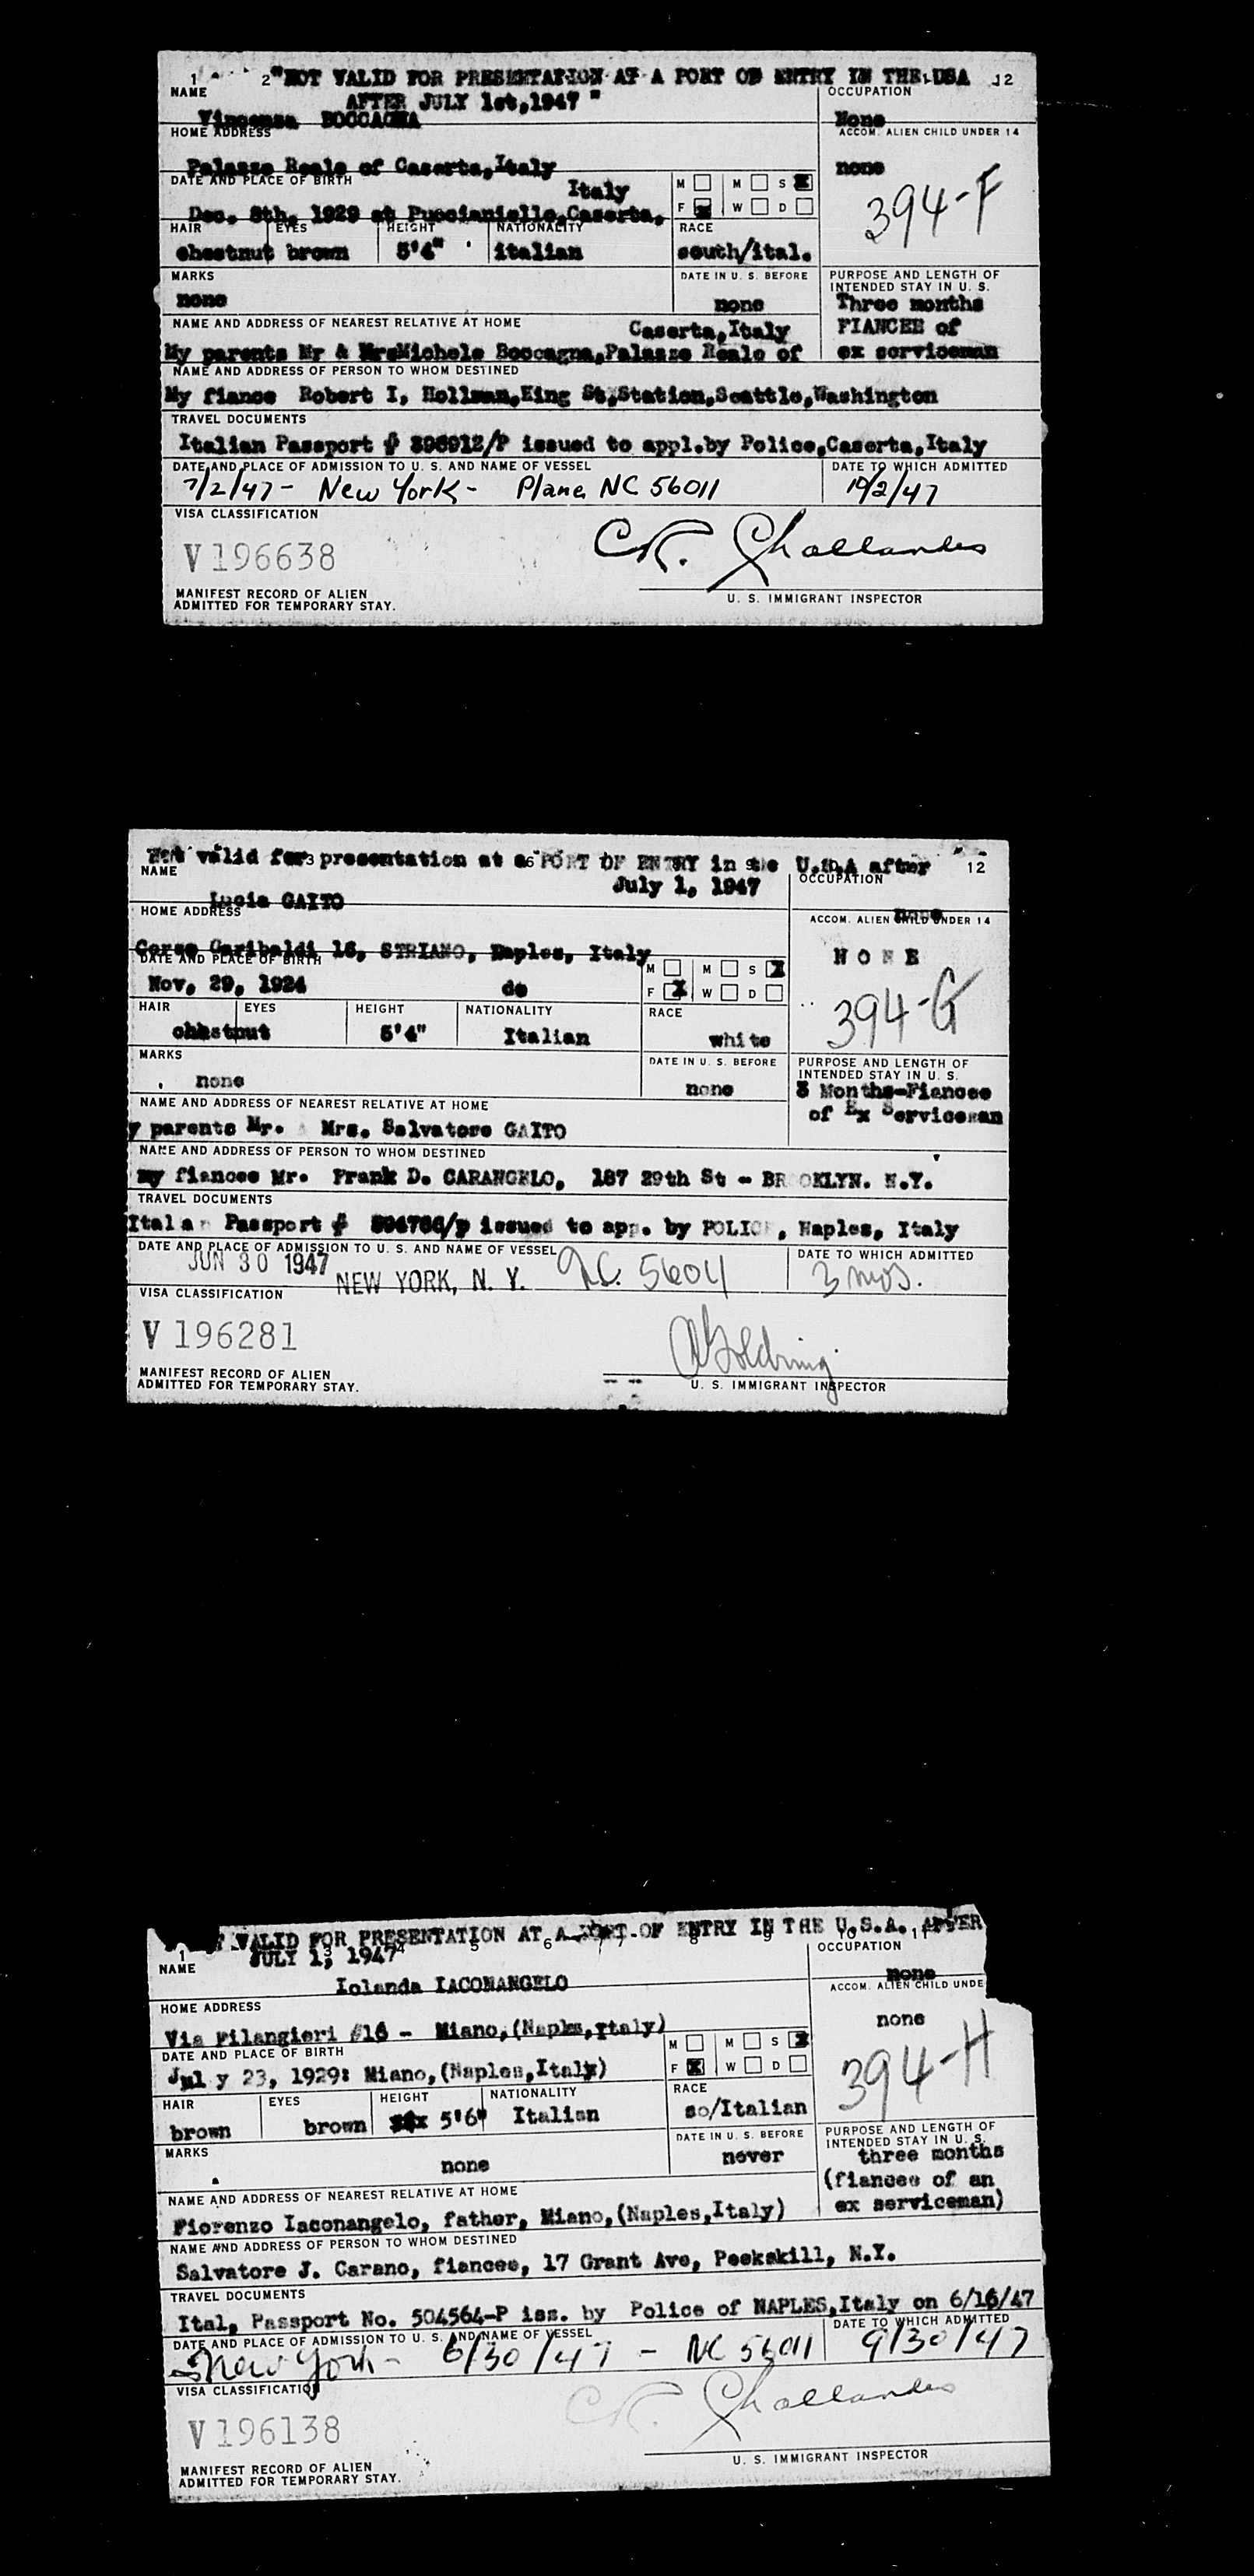 1 2 "NOT VALID FOR PRESENTATION AT A PORT OF ENTRY IN THE USA 12
AFTER JULY 1st,1947 "
NAME
Vincenza BOCCAGNA
OCCUPATION
None
HOME ADDRESS
Palazzo Reale of Caserta,Italy
ACCOM. ALIEN CHILD UNDER 14
none
DATE AND PLACE OF BIRTH
Italy
Dec. 8th, 1929 at Puccianiello,Caserta,
M M S X
F X W D
394-F
HAIR EYES HEIGHT NATIONALITY RACE
chestnut brown 5'4" italian south/ital.
MARKS
none
DATE IN U. S. BEFORE
none
PURPOSE AND LENGTH OF
INTENDED STAY IN U. S.
Three months
FIANCEE of
ex serviceman
NAME AND ADDRESS OF NEAREST RELATIVE AT HOME
Caserta,Italy
My parents Mr & MrsMichele Boccagna,Palazzo Reale of
NAME AND ADDRESS OF PERSON TO WHOM DESTINED
My fiance Robert I, Hollman,King St,Station,Seattle,Washington
TRAVEL DOCUMENTS
Italian Passport # 396912/P issued to appl.by Police,Caserta,Italy
DATE AND PLACE OF ADMISSION TO U. S. AND NAME OF VESSEL
7/2/47 - New York - Plane NC 56011
DATE TO WHICH ADMITTED
10/2/47
VISA CLASSIFICATION
V 196638
C R. Challandes
MANIFEST RECORD OF ALIEN
ADMITTED FOR TEMPORARY STAY.
U. S. IMMIGRANT INSPECTOR
Not valid for presentation at a PORT OF ENTRY in the U.S.A after 12
July 1, 1947
NAME
Lucia GAITO
OCCUPATION
none
HOME ADDRESS
Corso Garibaldi 16, STRIANO, Naples, Italy
ACCOM. ALIEN CHILD UNDER 14
NONE
DATE AND PLACE OF BIRTH
Nov, 29, 1924 do
M M S X
F X W D
394-G
HAIR EYES HEIGHT NATIONALITY RACE
chhstnut 5'4" Italian white
MARKS
none
DATE IN U. S. BEFORE
none
PURPOSE AND LENGTH OF
INTENDED STAY IN U. S.
3 Months-Fiancee
of Ex Serviceman
NAME AND ADDRESS OF NEAREST RELATIVE AT HOME
y parents Mr. Mrs. Salvatore GAITO
NAME AND ADDRESS OF PERSON TO WHOM DESTINED
my fiancee Mr. Frank D. CARANGELO, 187 29th St - BROOKLYN. N.Y.
TRAVEL DOCUMENTS
Italan Passport # 394766/p issued to app. by POLICE, Naples, Italy
DATE AND PLACE OF ADMISSION TO U. S. AND NAME OF VESSEL
JUN 30 1947 NEW YORK, N. Y. N.C. 5604
DATE TO WHICH ADMITTED
3 mos.
VISA CLASSIFICATION
V 196281
Goldring
MANIFEST RECORD OF ALIEN
ADMITTED FOR TEMPORARY STAY.
U. S. IMMIGRANT INSPECTOR
T VALID FOR PRESENTATION AT A PORT OF ENTRY IN THE U.S.A. AFTER
JULY 1, 1947
NAME
Iolanda IACONANGELO
OCCUPATION
none
HOME ADDRESS
Via Filangieri #16 - Miano,(Naples,Italy)
ACCOM. ALIEN CHILD UNDE
none
DATE AND PLACE OF BIRTH
July 23, 1929: Miano,(Naples,Italy)
M M S X
F X W D
394-H
HAIR EYES HEIGHT NATIONALITY RACE
brown brown 5'6" Italian so/Italian
MARKS
none
DATE IN U. S. BEFORE
never
PURPOSE AND LENGTH OF
INTENDED STAY IN U. S.
three months
(fiancee of an
ex serviceman)
NAME AND ADDRESS OF NEAREST RELATIVE AT HOME
Fiorenzo Iaconangelo, father, Miano,(Naples,Italy)
NAME AND ADDRESS OF PERSON TO WHOM DESTINED
Salvatore J. Carano, fiancee, 17 Grant Ave, Peekskill, N.Y.
TRAVEL DOCUMENTS
Ital, Passport No. 504564-P iss. by Police of NAPLES,Italy on 6/16/47
DATE AND PLACE OF ADMISSION TO U. S. AND NAME OF VESSEL
New York - 6/30/47 - NC 56011
DATE TO WHICH ADMITTED
9/30/47
VISA CLASSIFICATION
V 196138
C R. Challandes
MANIFEST RECORD OF ALIEN
ADMITTED FOR TEMPORARY STAY.
U. S. IMMIGRANT INSPECTOR